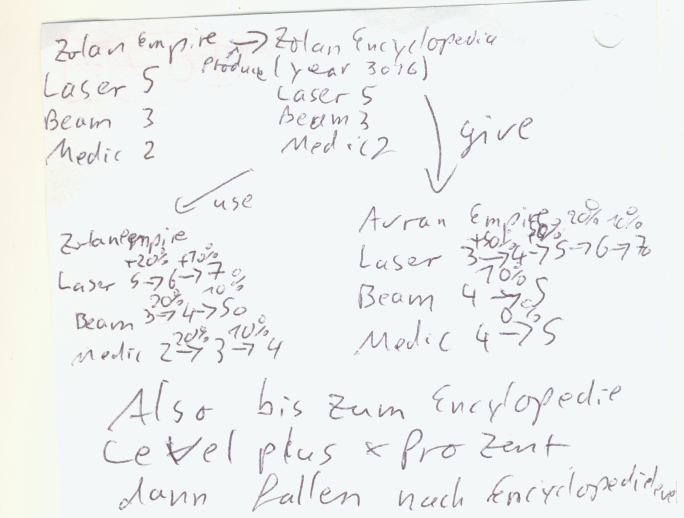 Zolan Empire → Zolan Encyclopedia
produce (year 3016)
Laser 5
Beam 3
Medic 2
Laser 5
Beam 3
Medic 2
give
use
Zolan empire
+20% +10%
Laser 5→6→7
20% 10%
Beam 3→4→5
20% 10%
Medic 2→3→4
Avran Empire
+50% +50% 20% 10%
Laser 3→4→5→6→7
10%
Beam 4→5
Medic 4→5
Also bis zum Encylopedie
Level plus x Prozent
dann fallen nach Encyclopedielevel